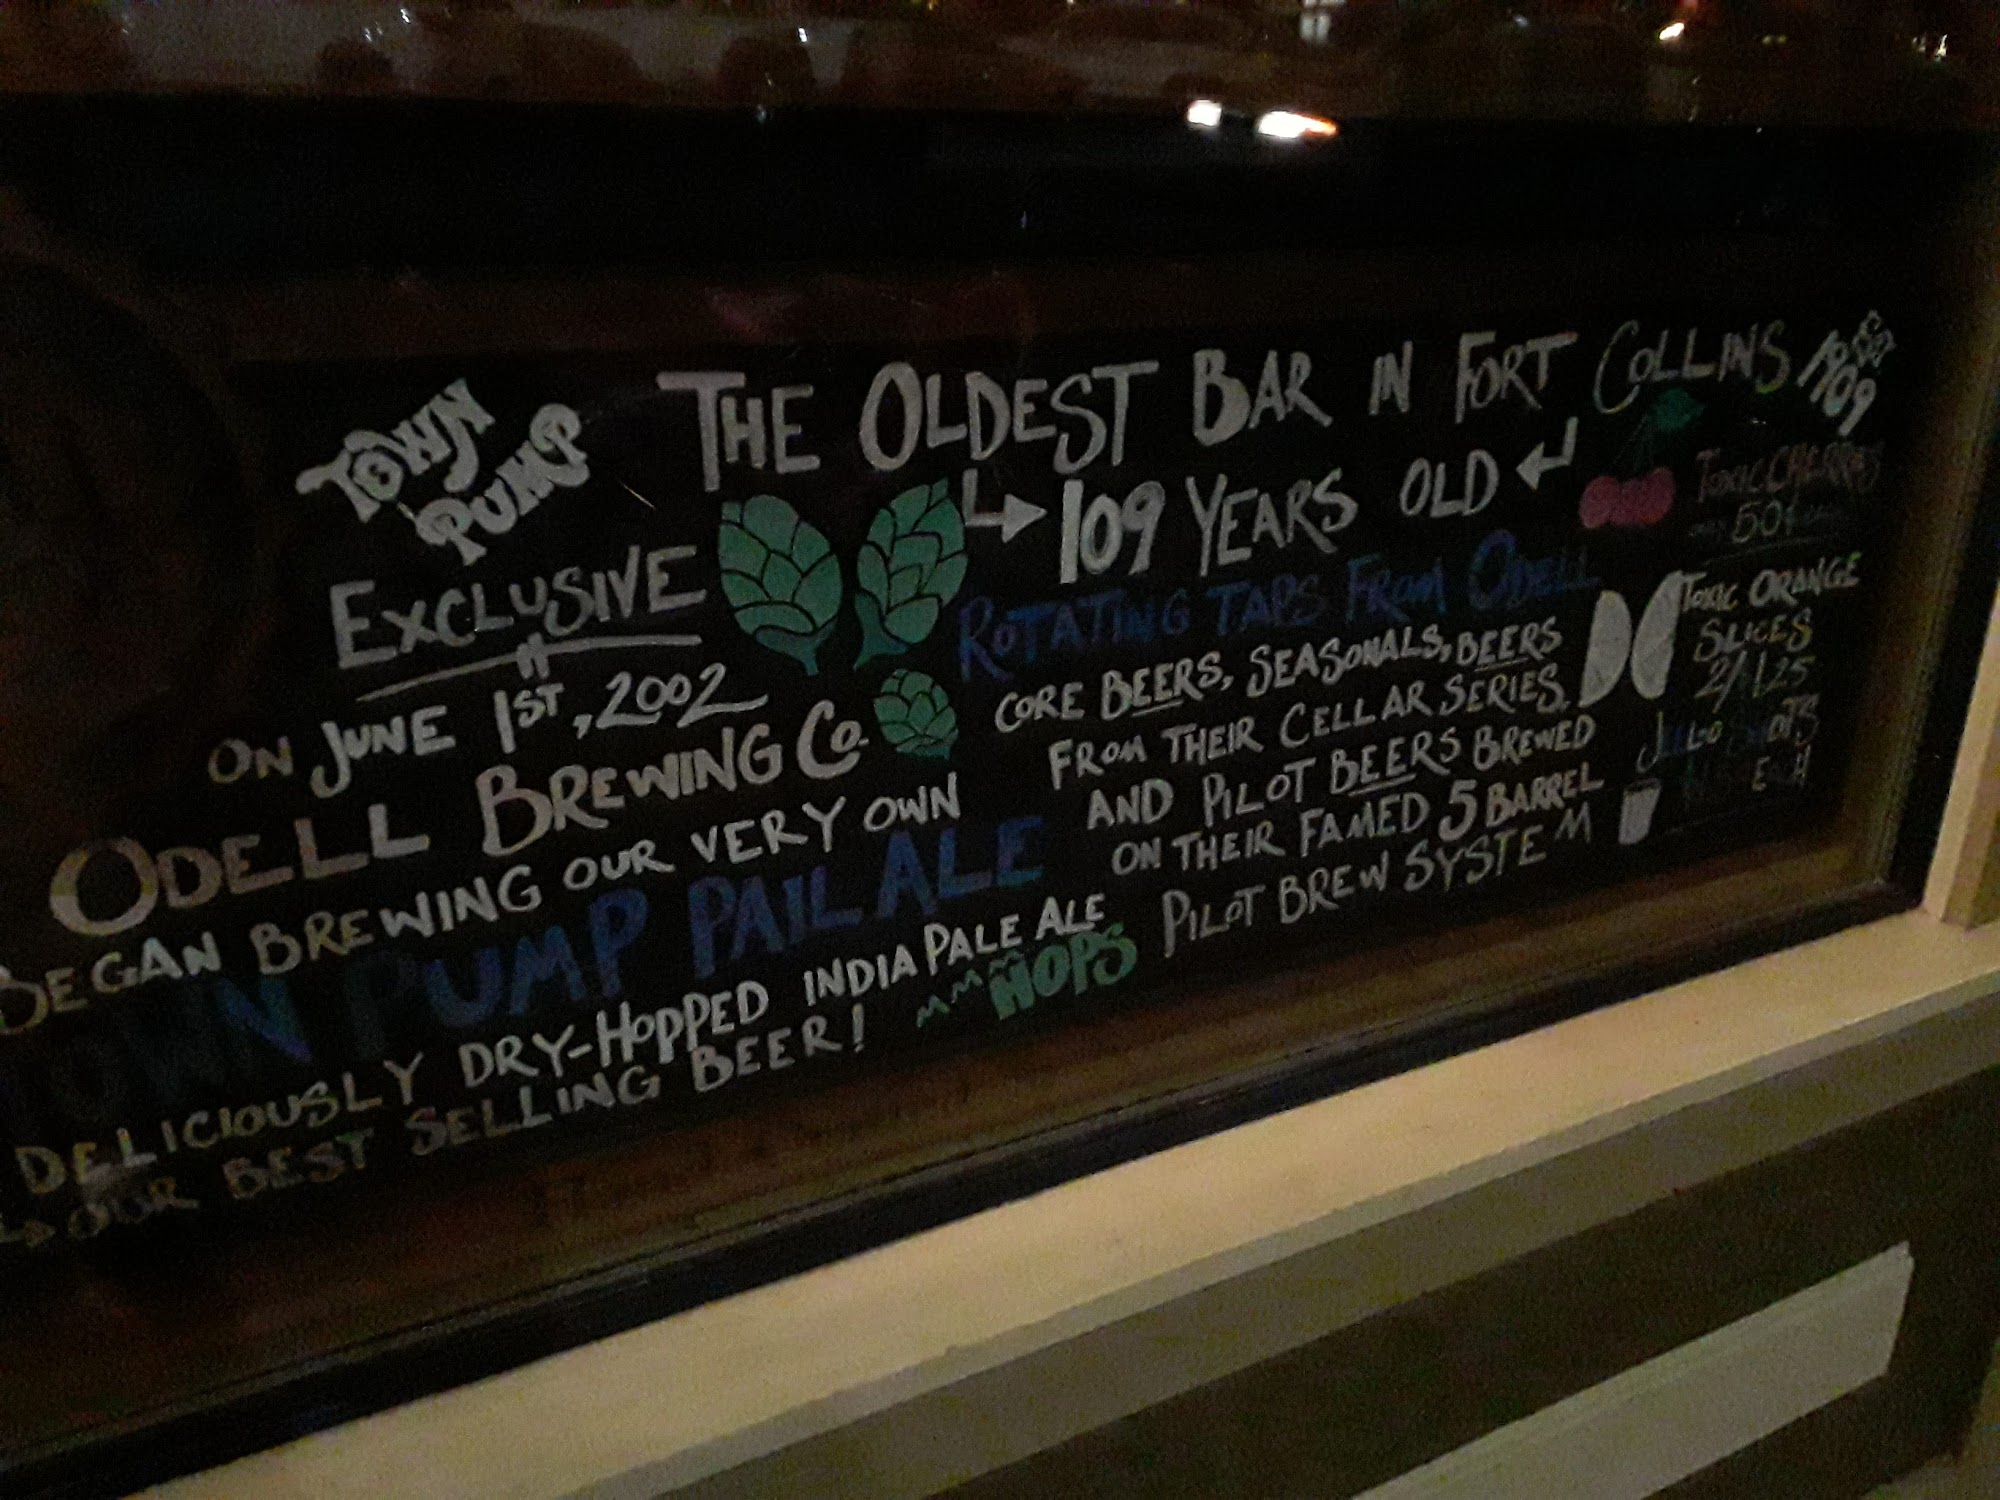 TOWN
PUMP
EXCLUSIVE
ON JUNE 1ST, 2002
ODELL BREWING CO.
BEGAN BREWING OUR VERY OWN
PUMP PAIL ALE
DELICIOUSLY DRY-HOPPED INDIA PALE ALE
OUR BEST SELLING BEER!
MMMM HOPS
THE OLDEST BAR IN FORT COLLINS
EST
1909
109 YEARS OLD
ROTATING TAPS FROM ODELL
CORE BEERS, SEASONALS, BEERS
FROM THEIR CELLAR SERIES,
AND PILOT BEERS BREWED
ON THEIR FAMED 5 BARREL
PILOT BREW SYSTEM
TOXIC CHERRIES
50¢
TOXIC ORANGE
SLICES
2/1.25
JELLO SHOTS
EACH